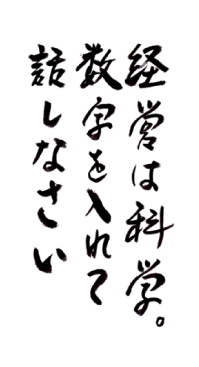 経営は科学。
数字を入れて
話しなさい